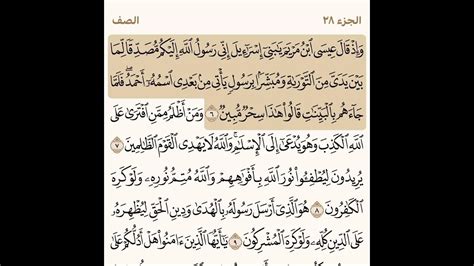 الجزء ٢٨ الصف
وَإِذْ قَالَ عِيسَى ابْنُ مَرْيَمَ يَٰبَنِىٓ إِسْرَٰٓءِيلَ إِنِّى رَسُولُ اللَّهِ إِلَيْكُم مُّصَدِّقًا لِّمَا
بَيْنَ يَدَىَّ مِنَ التَّوْرَىٰةِ وَمُبَشِّرًۢا بِرَسُولٍ يَأْتِى مِنۢ بَعْدِى اسْمُهُۥٓ أَحْمَدُ ۖ فَلَمَّا
جَآءَهُم بِالْبَيِّنَٰتِ قَالُوا۟ هَٰذَا سِحْرٌ مُّبِينٌ ٦ وَمَنْ أَظْلَمُ مِمَّنِ افْتَرَىٰ عَلَى
اللَّهِ الْكَذِبَ وَهُوَ يُدْعَىٰٓ إِلَى الْإِسْلَٰمِ ۚ وَاللَّهُ لَا يَهْدِى الْقَوْمَ الظَّٰلِمِينَ ٧
يُرِيدُونَ لِيُطْفِـُٔوا۟ نُورَ اللَّهِ بِأَفْوَٰهِهِمْ وَاللَّهُ مُتِمُّ نُورِهِۦ وَلَوْ كَرِهَ
الْكَٰفِرُونَ ٨ هُوَ الَّذِىٓ أَرْسَلَ رَسُولَهُۥ بِالْهُدَىٰ وَدِينِ الْحَقِّ لِيُظْهِرَهُۥ
عَلَى الدِّينِ كُلِّهِۦ وَلَوْ كَرِهَ الْمُشْرِكُونَ ٩ يَٰٓأَيُّهَا الَّذِينَ ءَامَنُوا۟ هَلْ أَدُلُّكُمْ عَلَىٰ